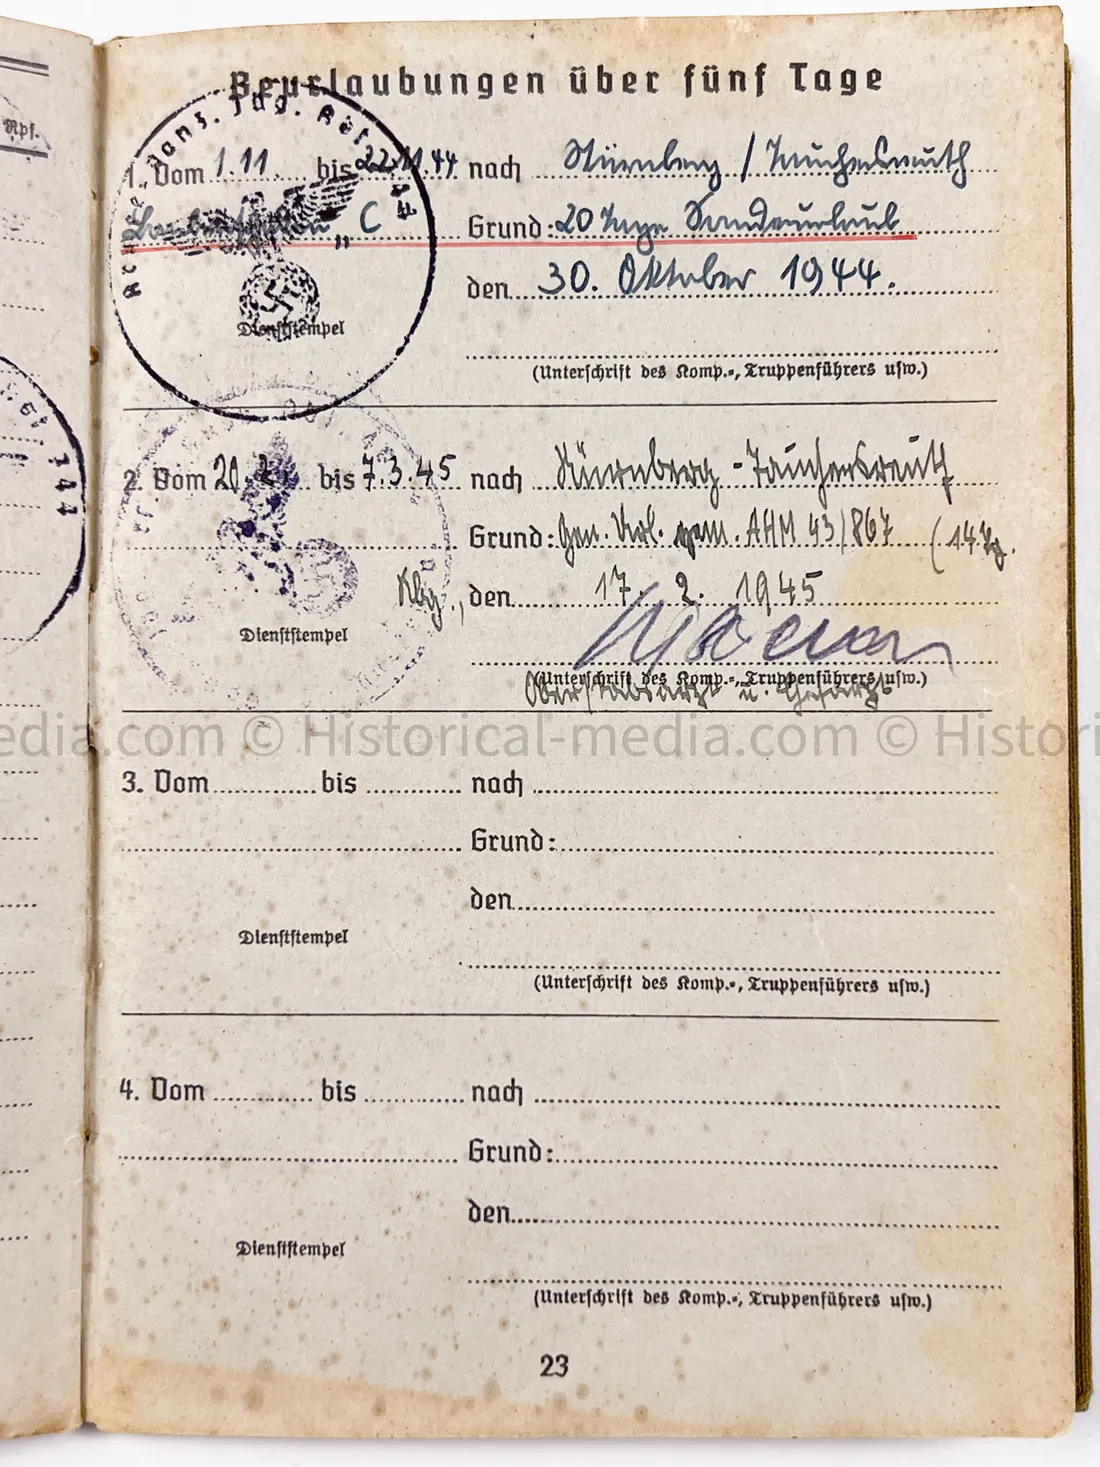 Rpf.
Beurlaubungen über fünf Tage
1. Vom 1.11. bis 22.11.44 nach Nürnberg / Tauchersreuth
"C" Grund: 20 Tage Sonderurlaub
den 30. Oktober 1944.
Dienststempel
(Unterschrift des Komp.-, Truppenführers usw.)
2. Vom 20. bis 7.3.45 nach Nürnberg - Tauchersreuth
Grund: Gen. Url. gem. AHM 43/867 (14 Tg.
Nbg., den 17. 2. 1945
Dienststempel
(Unterschrift des Komp.-, Truppenführers usw.)
Oberstabsarzt u. Chefarzt
edia.com © Historical-media.com © Histori
3. Vom bis nach
Grund:
den
Dienststempel
(Unterschrift des Komp.-, Truppenführers usw.)
4. Vom bis nach
Grund:
den
Dienststempel
(Unterschrift des Komp.-, Truppenführers usw.)
23